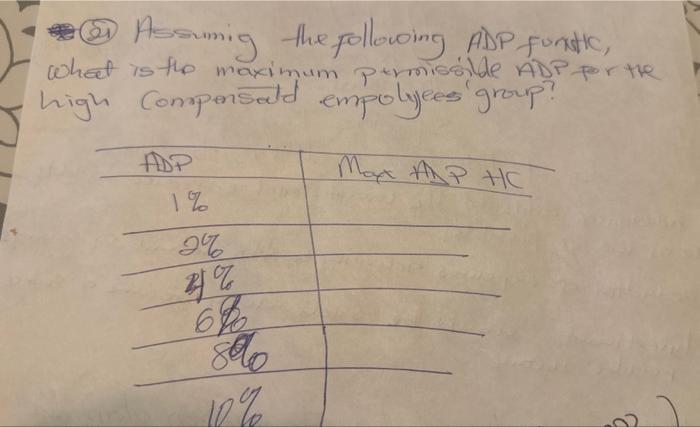 21 Assumig the following ADP for
what is the maximum permissible ADP for the
high Compensatd empolyees' group?
ADP Max ADP HC
1%
2%
4%
6%
8%
10%